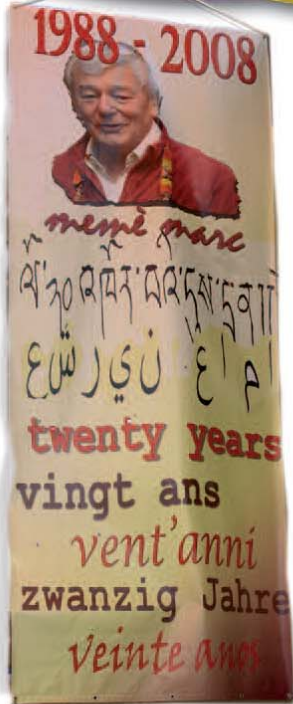 1988 - 2008
memè marc
ལོ་༢༠འཁོར་བའི་དུས་དྲན།།
م ا ع ن ي ر ش ع
twenty years
vingt ans
vent'anni
zwanzig Jahre
veinte anos